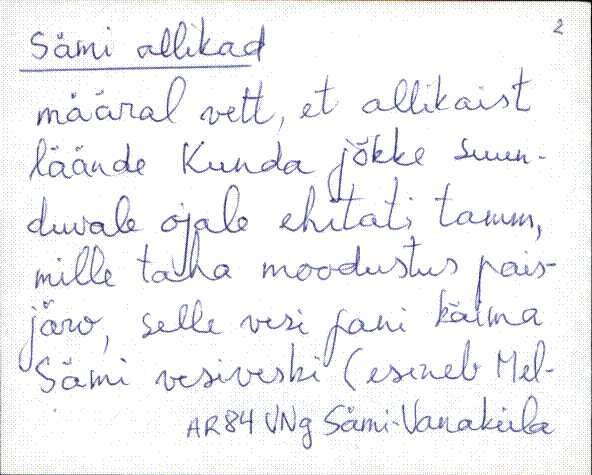 2
Sämi allikad
määral vett, et allikaist
läände Kunda jõkke suun-
duvale ojale ehitati tamm,
mille taha moodustus pais-
järv, selle vesi pani käima
Sämi vesiveski (esineb Mel-
AR84 VNg Sämi-Vanaküla